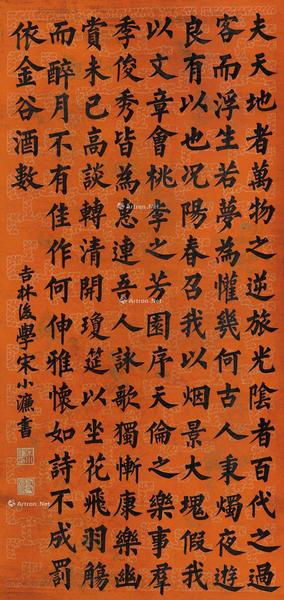 夫天地者萬物之逆旅光陰者百代之過
客而浮生若夢為懽幾何古人秉燭夜遊
良有以也况陽春召我以烟景大塊假我
以文章會桃李之芳園序天倫之樂事群
季俊秀皆為惠連吾人詠歌獨慚康樂幽
賞未已高談轉清開瓊筵以坐花飛羽觴
而醉月不有佳作何伸雅懷如詩不成罰
依金谷酒數
吉林後學宋小濂書
Artron.Net
Artron.Net
Artron.Net
Artron.Net
Artron.Net
Artron.Net